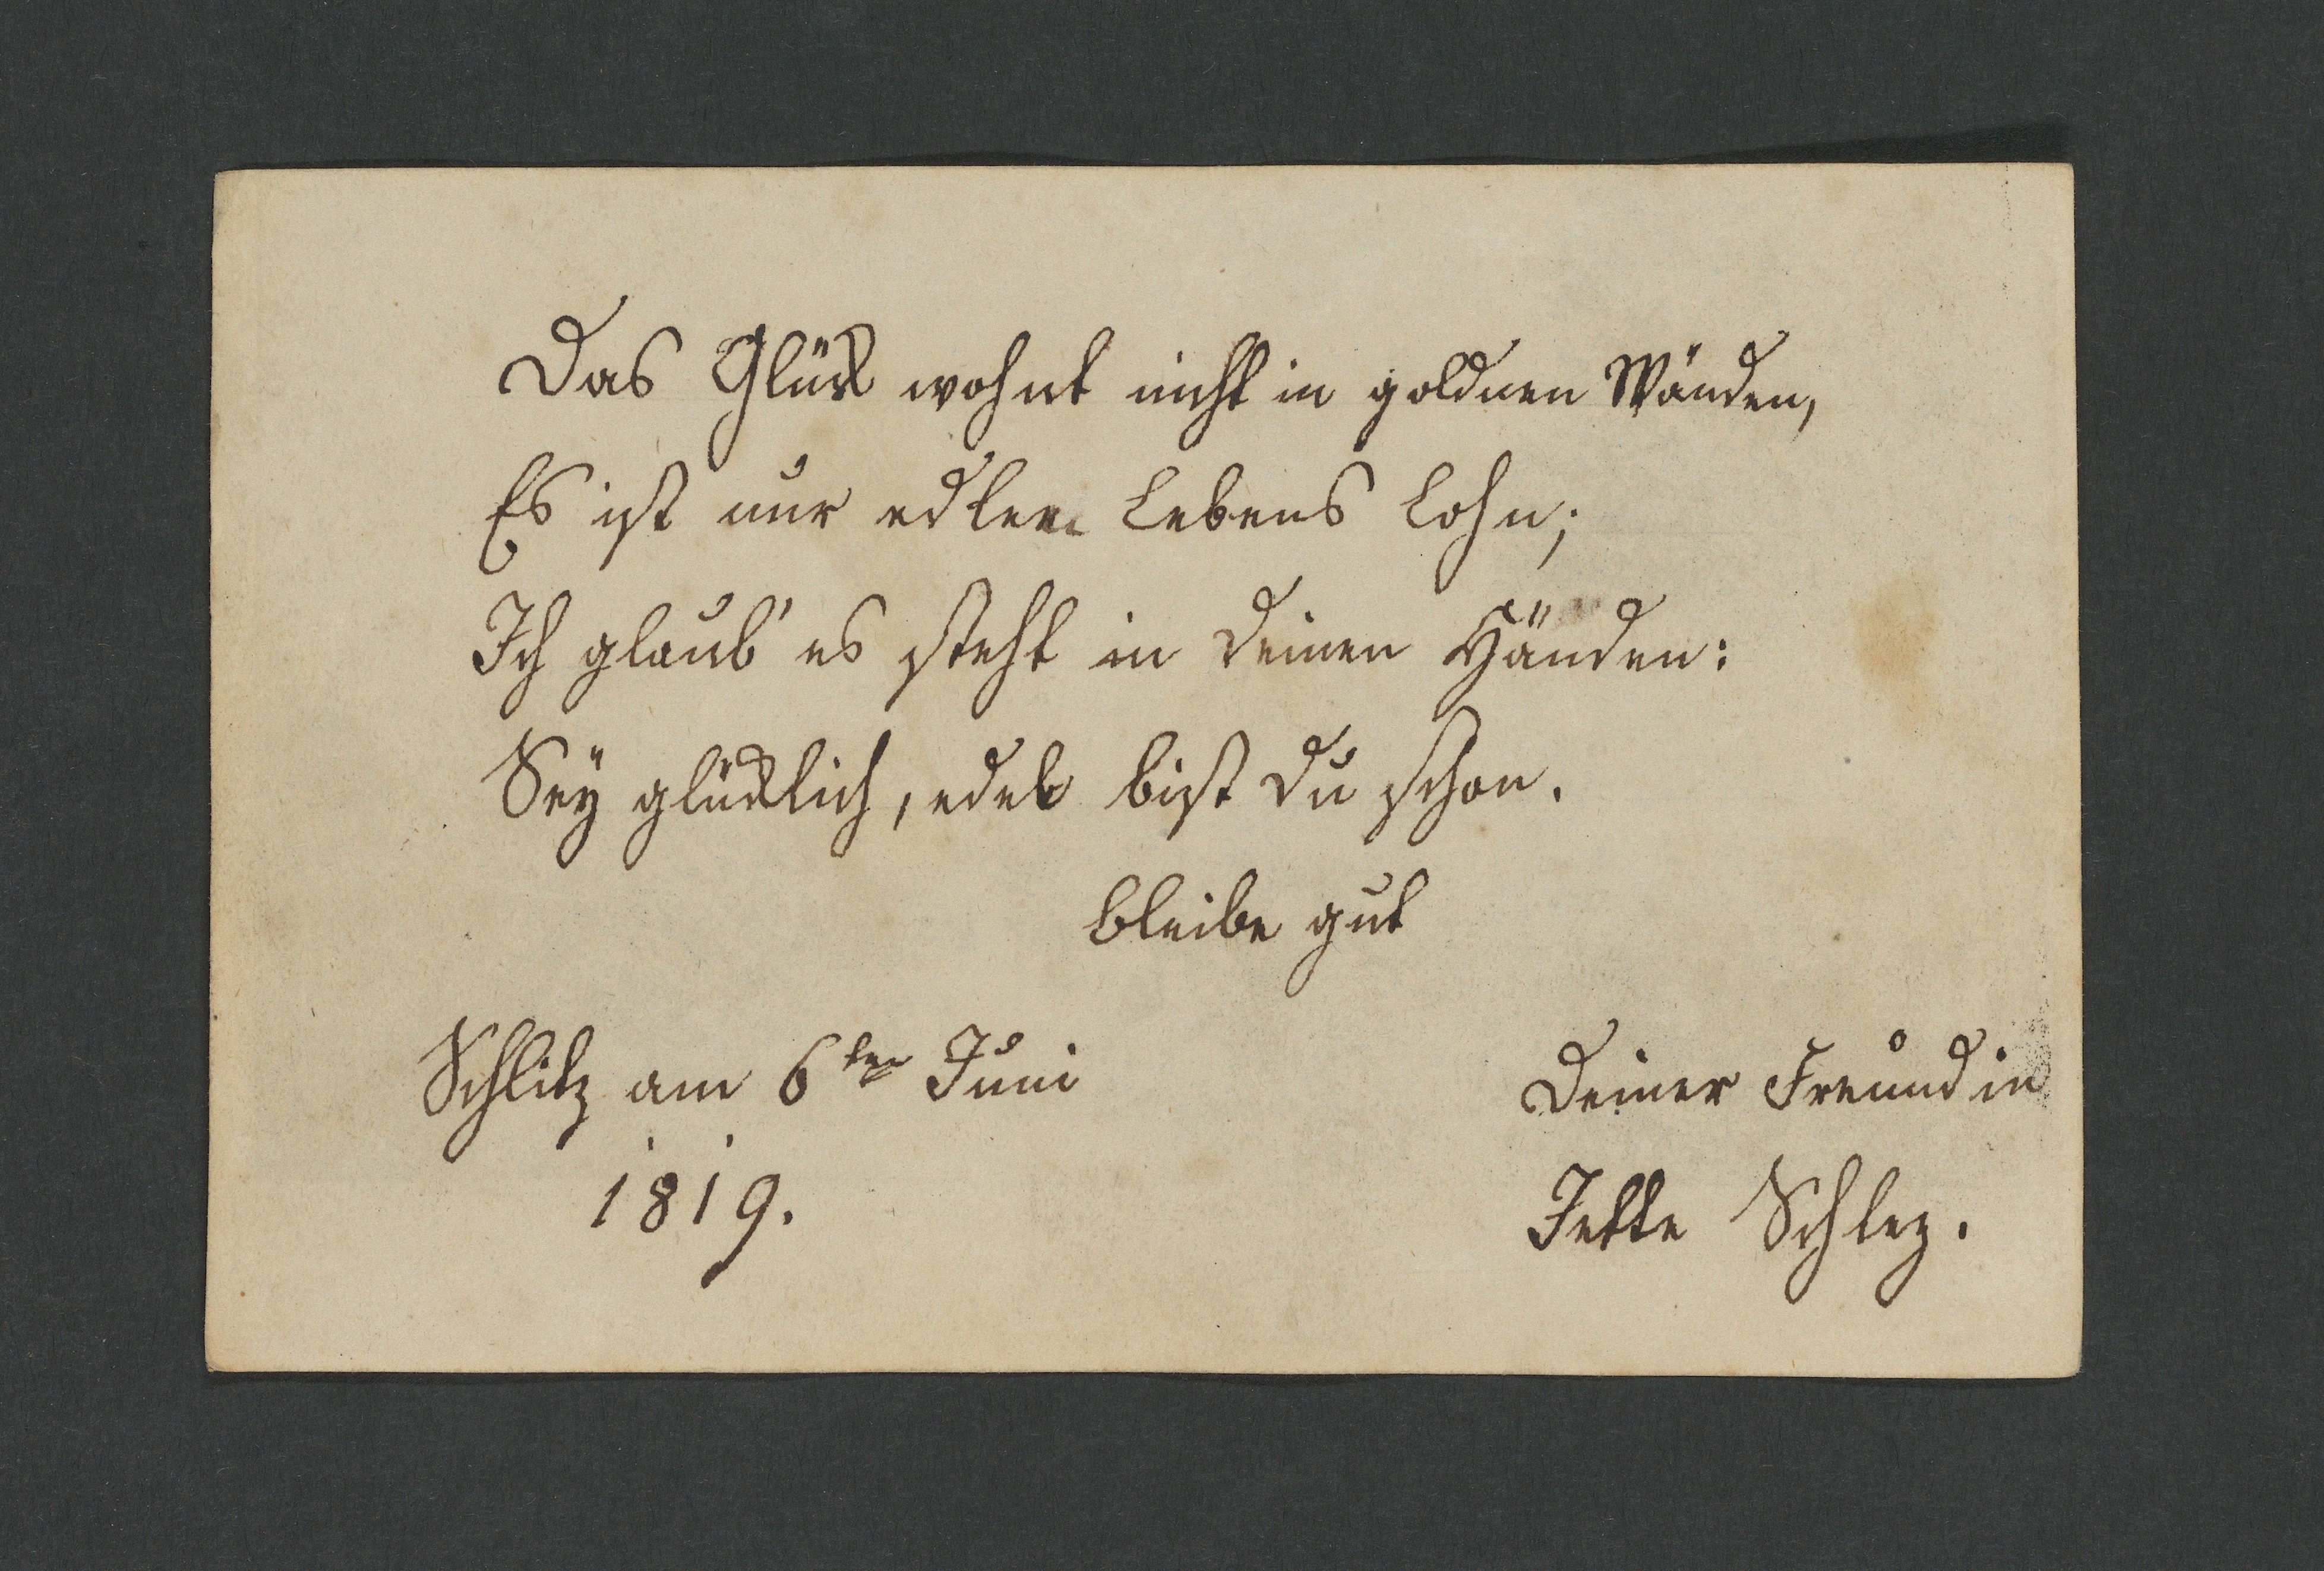 Das Glück wohnt nicht in goldnen Wänden,
Es ist nur edlen Lebens Lohn;
Ich glaub' es steht in Deinen Händen:
Sey glücklich, edel bist Du schon.
bleibe gut
Schlitz am 6ten Juni
1819.
Deiner Freundin
Jette Schlez.